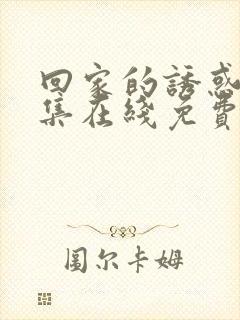 回家的誘惑
集在綫免費
圖尔卡姆